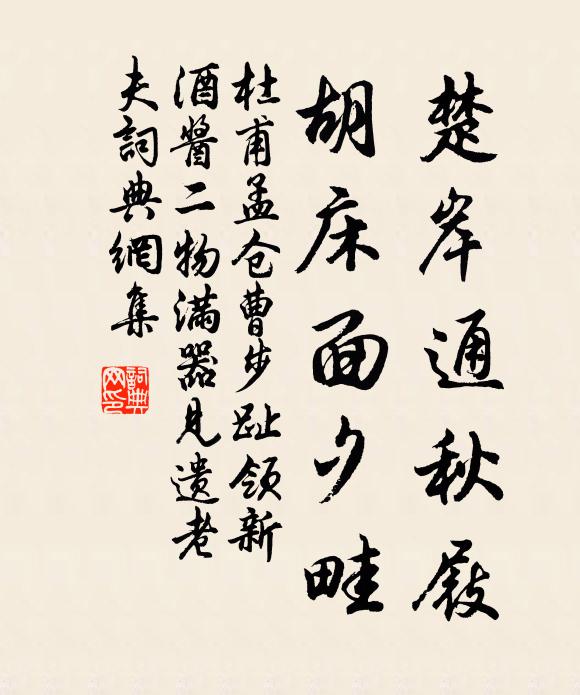 楚岸通秋屐
胡床面夕畦
杜甫孟仓曹步趾领新
酒醬二物满器見遗老
夫詞典網集
詞典網印